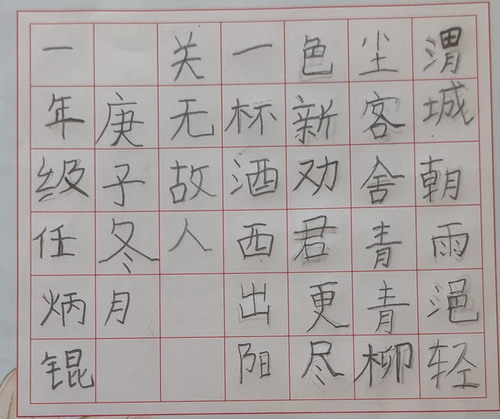 渭城朝雨浥轻
尘客舍青青柳
色新劝君更尽
一杯酒西出阳
关无故人
庚子冬月
一年级任炳锟